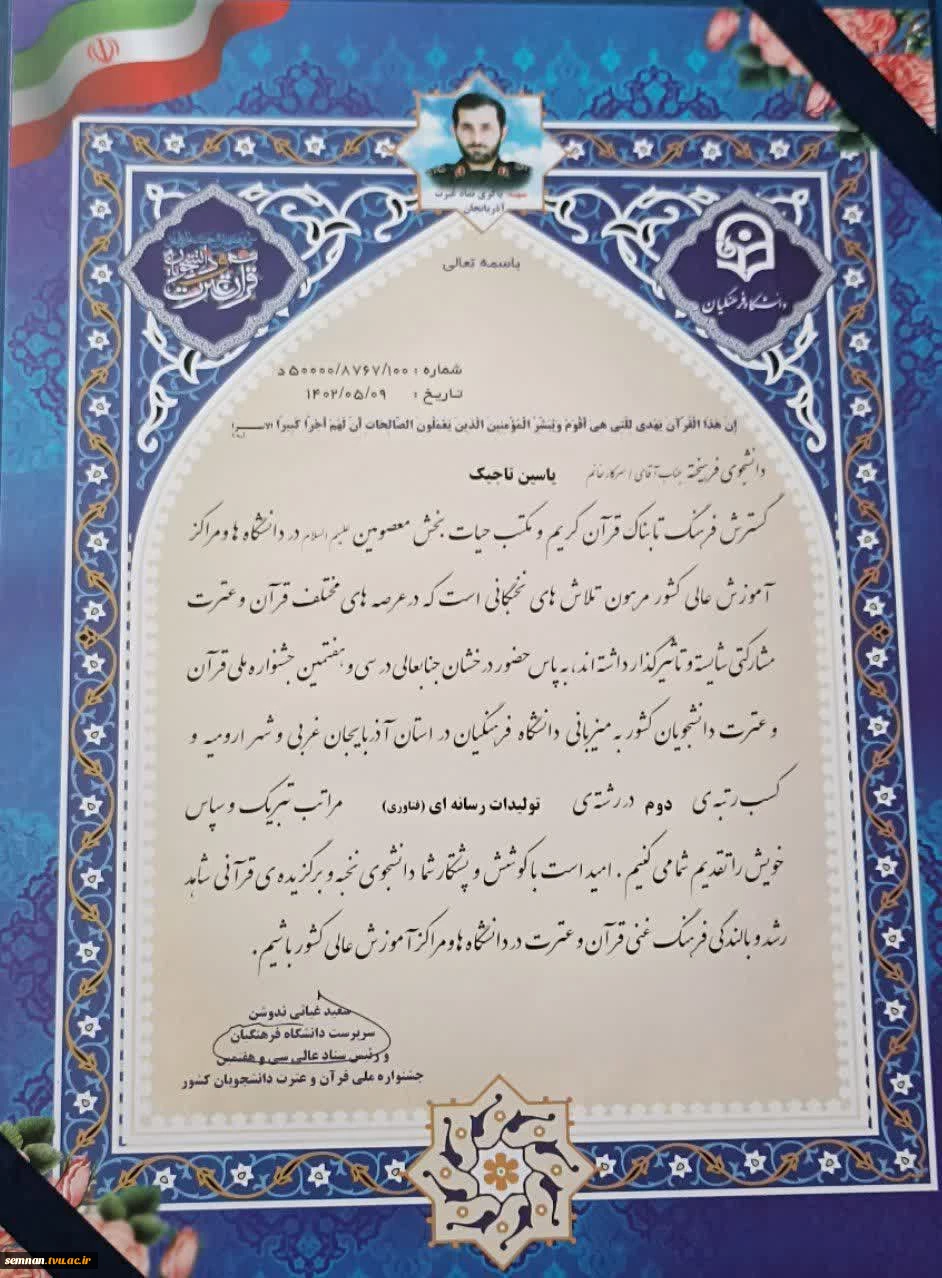 شهید باکری نماد غیرت
آذربایجان
قرآن و عترت
دانشجویان
دانشگاه فرهنگیان
باسمه تعالی
شماره : ۵۰۰۰۰/۸۷۶۷/۱۰۰ د
تاریخ : ۱۴۰۲/۰۵/۰۹
إن هَذَا الْقُرْآن یَهْدی لِلَّتی هِیَ أَقْوَمُ وَیُبَشِّرُ الْمُؤْمِنینَ الَّذینَ یَعْمَلُونَ الصَّالِحَاتِ أَنَّ لَهُمْ أَجْرًا کَبیرًا
دانشجوی فرهیخته جناب آقای / سرکار خانم یاسین تاجیک
گسترش فرهنگ تابناک قرآن کریم و مکتب حیات بخش معصومین علیهم السلام در دانشگاه ها و مراکز
آموزش عالی کشور مرهون تلاش های نخبگانی است که در عرصه های مختلف قرآن و عترت
مشارکتی شایسته و تاثیرگذار داشته اند، به پاس حضور درخشان جنابعالی در سی و هفتمین جشنواره ملی قرآن
و عترت دانشجویان کشور به میزبانی دانشگاه فرهنگیان در استان آذربایجان غربی و شهر ارومیه و
کسب رتبه ی دوم در رشته ی تولیدات رسانه ای (فناوری) مراتب تبریک و سپاس
خویش را تقدیم شما می کنیم . امید است با کوشش و پشتکار شما دانشجوی نخبه و برگزیده ی قرآنی شاهد
رشد و بالندگی فرهنگ غنی قرآن و عترت در دانشگاه ها و مراکز آموزش عالی کشور باشیم.
سعید غیاثی ندوشن
سرپرست دانشگاه فرهنگیان
و رئیس ستاد عالی سی و هفتمین
جشنواره ملی قرآن و عترت دانشجویان کشور
semnan.tvu.ac.ir